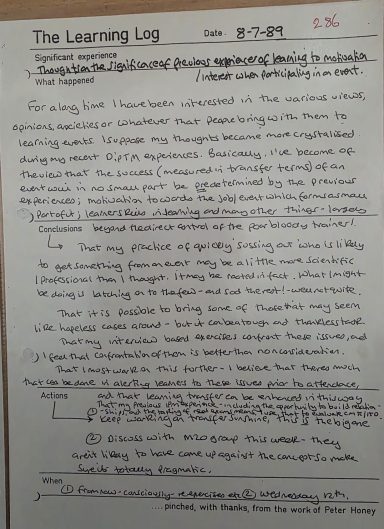 286
The Learning Log Date. 8-7-89
Significant experience
Thoughts on the significance of previous experience of learning to motivation
/interest when participating in an event.
What happened
For a long time I have been interested in the various views,
opinions, anxieties or whatever that people bring with them to
learning events. I suppose my thoughts became more crystalised
during my recent DipTM experiences. Basically, I've become of
the view that the success (measured in transfer terms) of an
event will in no small part be predetermined by the previous
experiences; motivation towards the job/event which forms a small
part of it; learners in learning and many other things - largely
beyond the direct control of the poor bloody trainer!
Conclusions
That my practice of quickly 'sussing out' who is likely
to get something from an event may be a little more scientific
/professional than I thought. It may be rooted in fact. What I might
be doing is latching on to the few - and sod the rest! - well not quite.
That it is possible to bring some of those that may seem
like hopeless cases around - but it can be a tough and thankless task
That my interview based exercises confront these issues, and
I feel that confrontation of them is better than non consideration.
That I must work on this further - I believe that there's much
that can be done in alerting learners to these issues prior to attendance,
and that learning transfer can be enhanced in this way
Actions
That my previous experience - including the opportunity to build relation-
① -ships, and the
keep working on transfer sunshine, this is the big one
② Discuss with M20 group this week - they
aren't likely to have come up against the concept so make
sure its totally pragmatic.
When
① from now - consciously - re exercises etc ② Wednesday 12th.
.... pinched, with thanks, from the work of Peter Honey